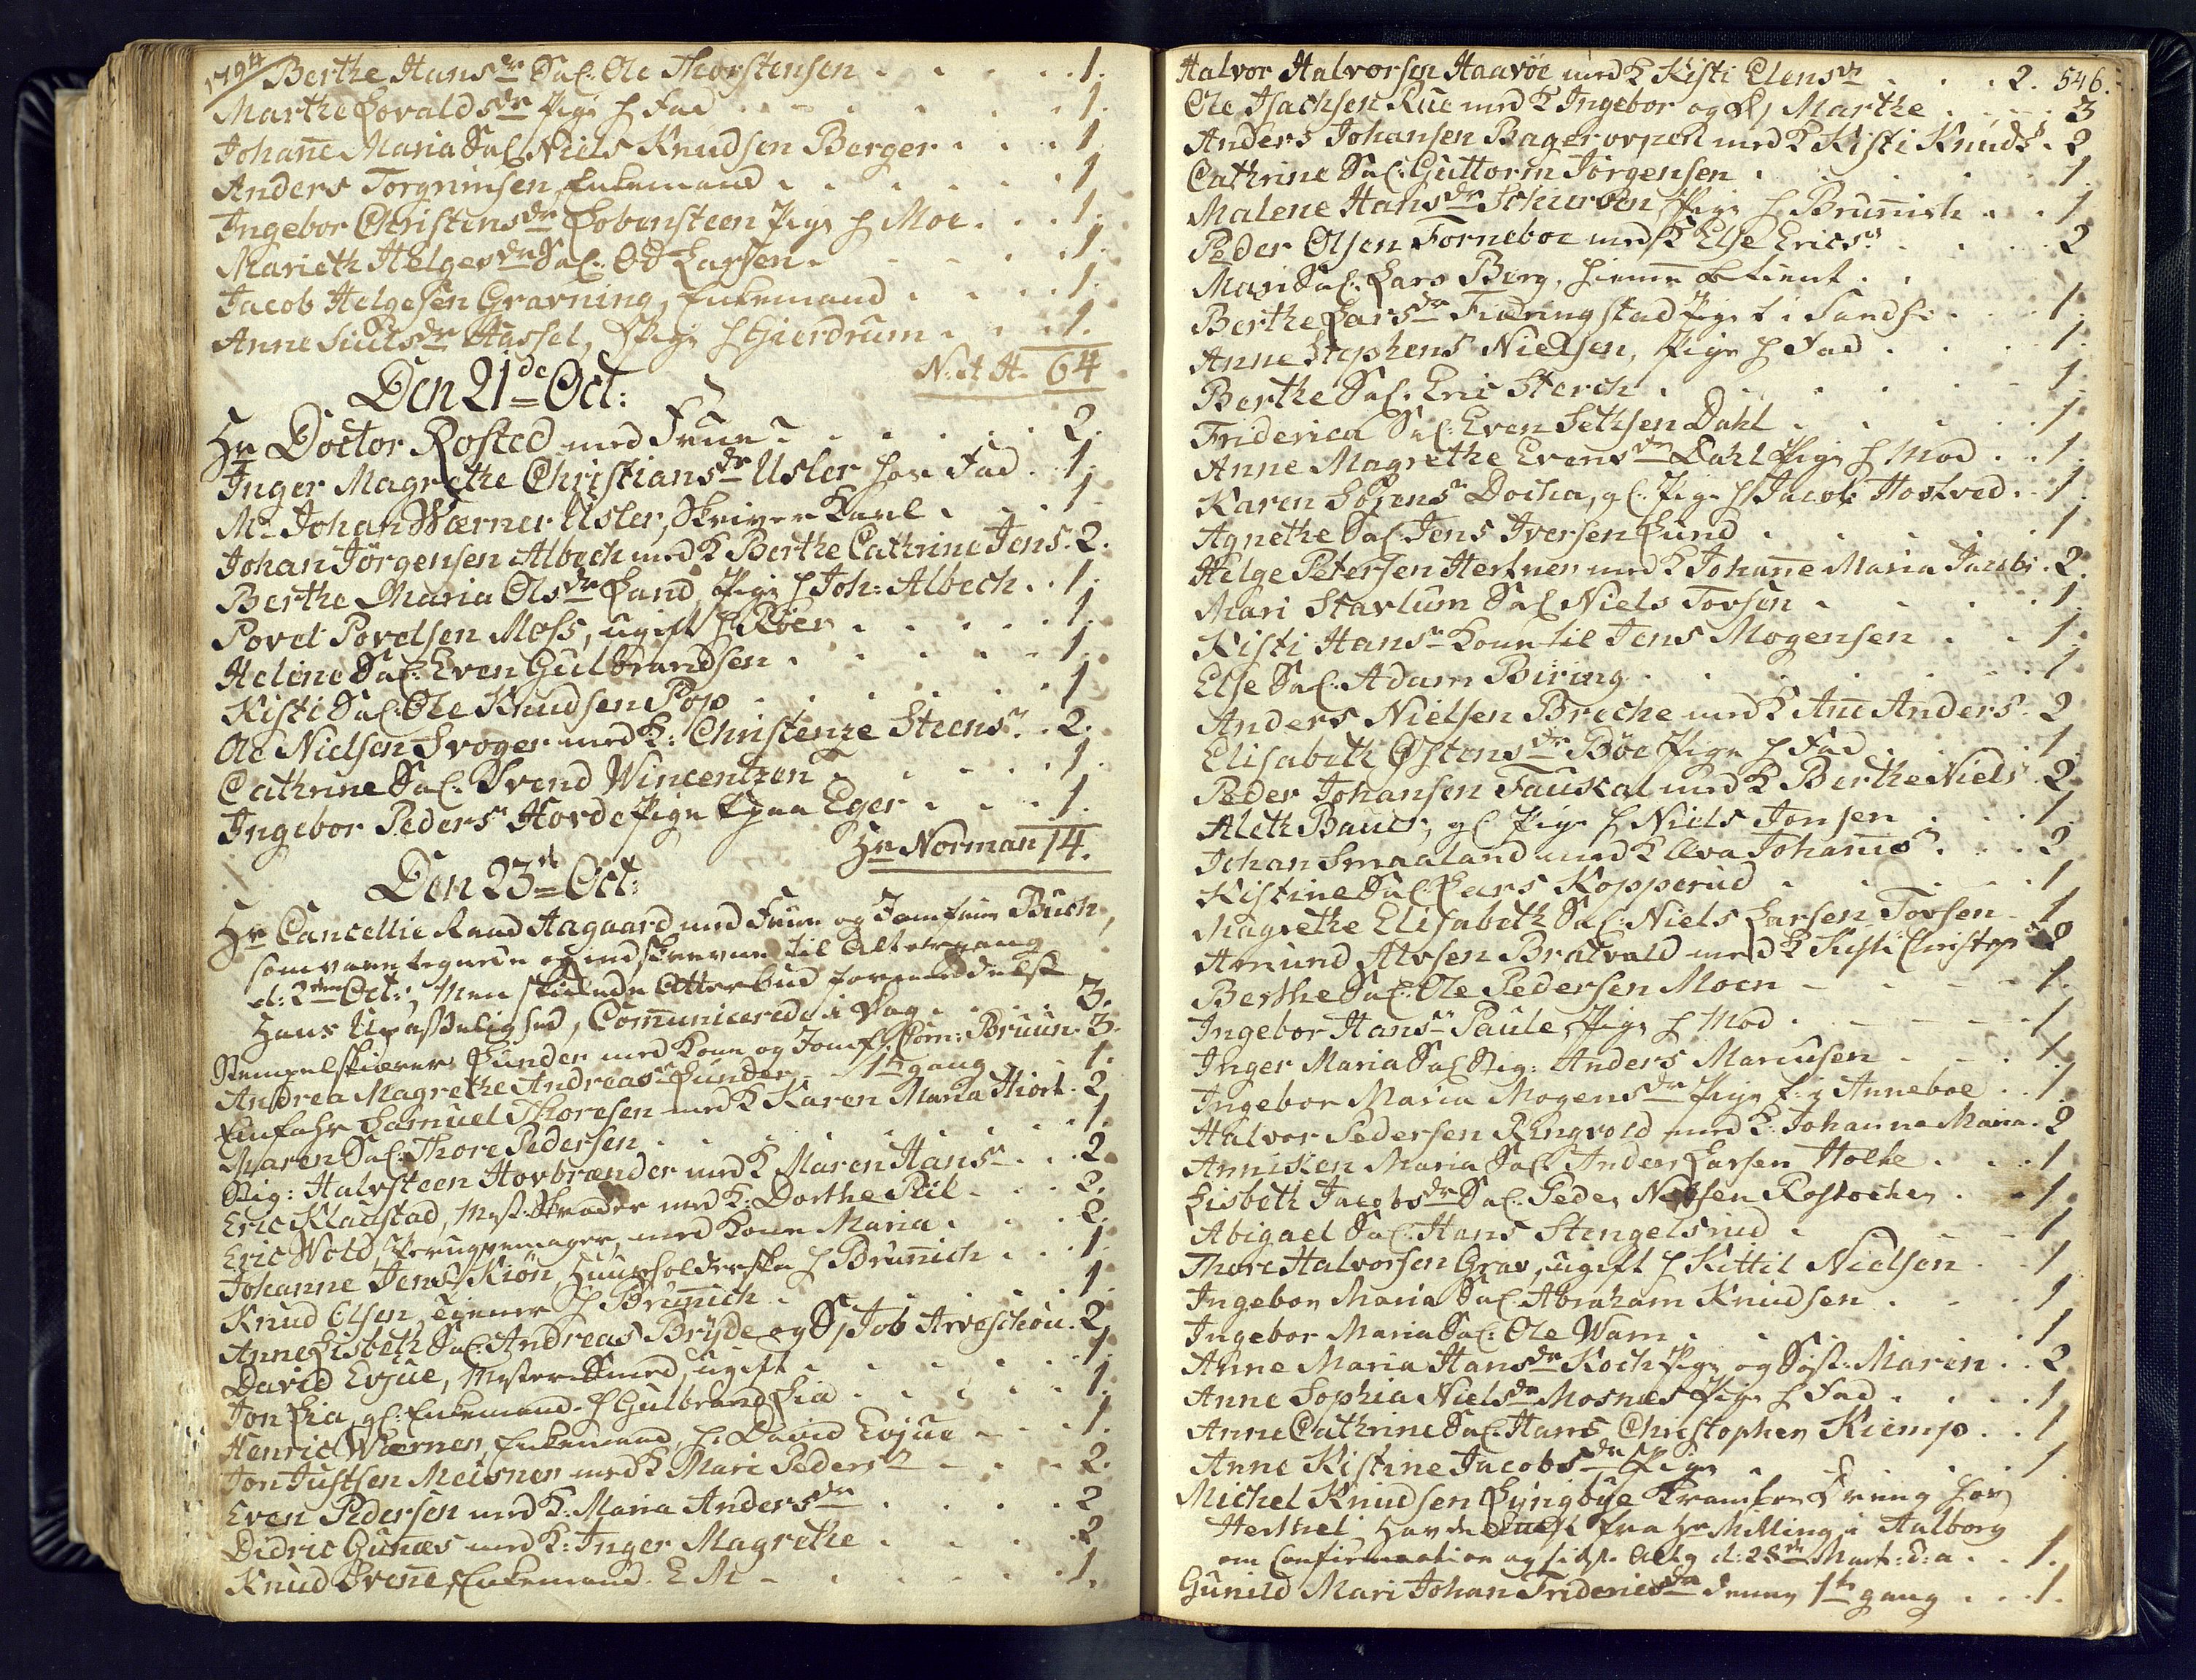 1794
Berthe Hans dr Sal: Ole Thorstensen . . . . . 1.
Marthe Lovalds dr Pige h Fad . . . . . 1.
Johanne Maria Sal Niels Knudsen Berger . . . 1
Anders Torgrimsen Enkemand . . . . . 1
Ingebor Christens dr Lobensteen Pige h Moe . . . 1.
Marieth Helges dr Sal. Od Larsen . . . . 1.
Jacob Helgesen Gravning, Enkemand . . . . 1.
Anne Siuls dr Hassel, Pige h Gierdrum . . . 1.
N: et A. 64
Den 21de Oct:
Hr Doctor Rosted med Frue . . . . . 2.
Inger Magrethe Christians dr Usler hos Fad . 1.
Mr Johan Wærner Usler, Skriver Karl . . . 1
Johan Jörgensen Albech med K Berthe Cathrine Jens. 2.
Berthe Maria Ols dr Land Pige h Joh: Albech . . 1.
Povel Povelsen Moss, ugift h Röer . . . . . 1.
Helene Sal: Even Gulbrandsen . . . . . 1.
Kisti Sal: Ole Knudsen Pop . . . . . 1
Ole Nielsen Svoger med K: Christenze Steens . . 2.
Cathrine Sal: Svend Wincentzen . . . . . 1.
Ingebor Peders Hovde Pige t paa Eger . . . 1.
Hr Norman 14.
Den 23de Oct:
Hr Cancellie Raad Aagaard med Frue og Jomfrue Buch,
som vare tegnede og indskrevne til Altergang
d: 2den Oct:, men skiende Atterbud formedelst
Hans Upasselighed, Communicerede i Dag . . . . 3.
Stempelskiærer Lunder med Kone og Jomf: Corn: Bruun. 3.
Andrea Magrethe Andreas Lunder 1te gang . . 1.
Enfahr Samuel Thoresen med K Karen Maria Hiort. 2
Maren Sal: Thore Pedersen . . . . . 1.
Stig: Halvsteen Hovbrænder med K Maren Hans . . . 2.
Eric Klagstad, Mest. Skræder med K: Dorthe Piil . . . 2.
Eric Wold, Perugvemager, med Kone Maria . . . . 2.
Johanne Jens Kiön, Huusholderske h Brünnich . . . 1.
Knud Olsen, tiener h Brünnich . . . . . 1.
Anne Lisbeth Sal: Andreas Bryde og S Job Arveschou. 2.
David Evjue, Mester Smed, ugift . . . . . 1.
Jon Lia, gl: Enkemand h Gulbrand Lia . . . . 1.
Henric Wærner, Enkemand, h. David Evjue . . . 1.
Jon Justsen Meisner med K Mari Peders . . . 2.
Even Pedersen med K: Maria Anders dr . . . . 2
Didric Gunæs med K: Inger Magrethe . . . . 2
Knud Svenne, Enkemand E M . . . . . 1.
Halvor Halvorsen Haavöe med K Kisti Elens dr . . . 2. 546.
Ole Isachsen Rue med K Ingebor og D Marthe . . . 3
Anders Johansen Bagerovnen med K Kisti Knuds . 2
Cathrine Sal: Guttorm Jörgensen . . . . . 1.
Malene Hans dr Schierven Pige h Brünnich . . . 1
Peder Olsen Forneboe med K Else Erics . . . . 2
Mari Sal: Lars Berg, hiemme betient . .
Berthe Lars dr Fredringstad Pige t i Sandsv . . . 1.
Anne Stephens Nielsen, Pige h Fad . . . . 1.
Berthe Sal: Eric Sterch . . . . . 1
Friderica Sal: Even Sethsen Dahl . . . . 1
Anne Magrethe Evens dr Dahl Pige h Mod . . . 1.
Karen Sörens Docka, gl: Pige h Jacob Hostved . . 1.
Agnethe Sal Jens Iversen Lund . . . . . 1
Helge Petersen Hertner med K Johanne Maria Jacobs . 2.
Mari Stavlum Sal Niels Tovsen . . . . . 1.
Kisti Hans Kone til Jens Mogensen . . . 1.
Else Sal: Adam Biring . . . . . 1
Anders Nielsen Breche med K Anne Anders . 2
Elisabeth Östens dr Böe Pige h Fad . . . . 1.
Peder Johansen Fauskal med K Berthe Niels . 2.
Aleth Baues, gl Pige h Niels Jonsen . . . 1.
Johan Smaaland med K Eva Johannes . . . 2
Kistine Sal: Lars Kopperud . . . . . 1
Magrethe Elisabeth Sal: Niels Larsen Tovsen . 1
Amund Alvsen Bratvald med K Kisti Christop . 2
Berthe Sal: Ole Pedersen Moen . . . . 1.
Ingebor Hans Paule, Pige h Mod . . . . . 1
Inger Maria Sal Stig: Anders Mariusen . . . 1.
Ingebor Maria Mogens dr Pige t: i Anneboe . . 1.
Halvor Pedersen Ringvold med K: Johanne Maria . 2
Anniken Maria Sal: Anders Larsen Holte . . . 1
Lisbeth Jacobs dr Sal: Peder Nielsen Rostocker . . 1.
Abigael Sal: Hans Stengelsrud . . . . 1
Thore Halvorsen Grav, ugift h Kittil Nielsen . . 1
Ingebor Maria Sal: Abraham Knudsen . . . 1
Ingebor Maria Sal: Ole Wam . . . . 1
Anne Maria Hans dr Koch Pige og Söst: Maren . . 2
Anne Sophia Niels dr Mosnes Pige h Fad . . . . 1.
Anne Cathrine Sal: Hans Christopher Kiemp . . 1
Anne Kistine Jacobs dr Pige . . . . . 1.
Michel Knudsen Lyngbye Krambu Dreng hos
Herthel, Havde Attest fra Hr Milling i Aalborg
om Confirmation og sidste Altg d: 28de Mart: d: a . . 1.
Gunild Mari Johan Friderics dr denne 1te gang . . . 1.